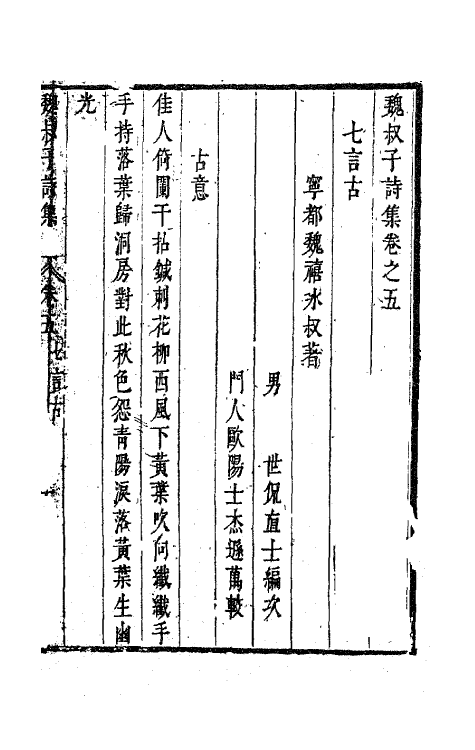 魏叔子詩集卷之五
七言古
寧都魏禧冰叔著
男　世侃直士編次
門人歐陽士杰遜萬較
古意
佳人倚闌干拈鍼刺花柳西風下黃葉吹向纖纖手
手持落葉歸洞房對此秋色怨青陽淚落黃葉生幽
光
魏叔子詩集　卷五七言古